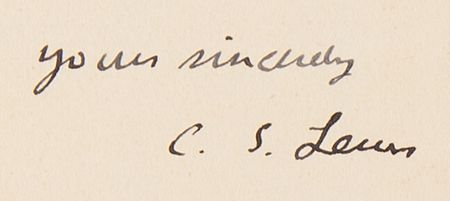 yours sincerely
C. S. Lewis